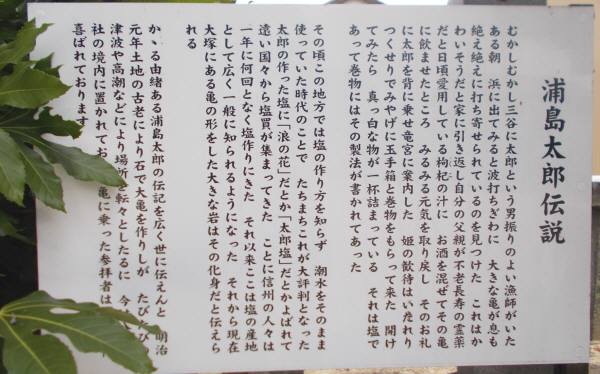 浦島太郎伝説
むかしむかし三谷に太郎という男振りのよい漁師がいた
ある朝 浜に出てみると波打ちぎわに 大きな亀が息も
絶え絶えに打ち寄せられているのを見つけた これはか
わいそうだと家に引き返し自分の父親が不老長寿の霊薬
だと日頃愛用している枸杞の汁に お酒を混ぜてその亀
に飲ませたところ みるみる元気を取り戻し そのお礼
に太郎を背に乗せ竜宮に案内した 姫の歓待はいたれり
つくせりでみやげに玉手箱と巻物をもらって来た 開け
てみたら 真っ白な物が一杯詰まっている それは塩で
あって巻物にはその製法が書かれてあった
その頃この地方では塩の作り方を知らず 潮水をそのまま
使っていた時代のことで たちまちこれが大評判となった
太郎の作った塩に「浪の花」だとか「太郎塩」だとかよばれて
遠い国々から塩買が集まってきた ことに信州の人々は
一年に何回となく塩作りにきた それ以来ここは塩の産地
として広く一般に知られるようになった それから現在
大塚にある亀の形をした大きな岩はその化身だと伝えら
れる
かゝる由緒ある浦島太郎の伝記を広く世に伝えんと 明治
元年土地の古老により石で大亀を作りしが たびたび
津波や高潮などにより場所を転々としたるに 今
社の境内に置かれてお 亀に乗った参拝者は
喜ばれております